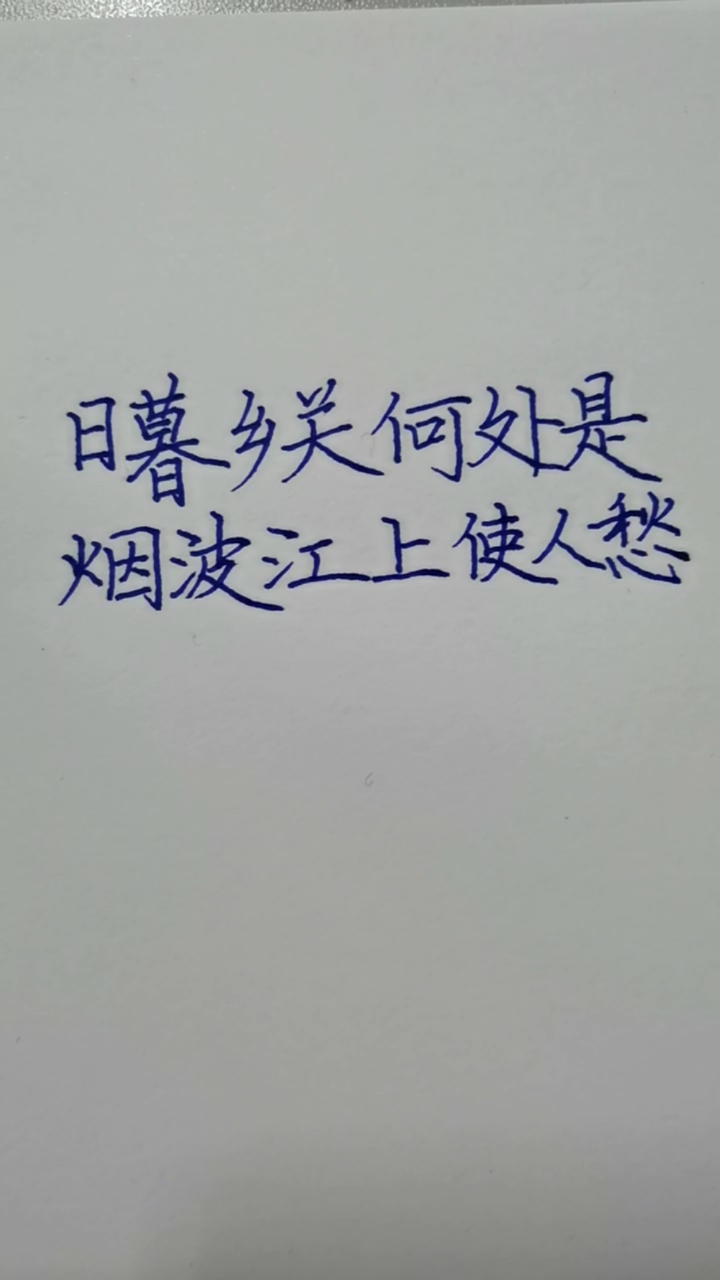 日暮乡关何处是
烟波江上使人愁